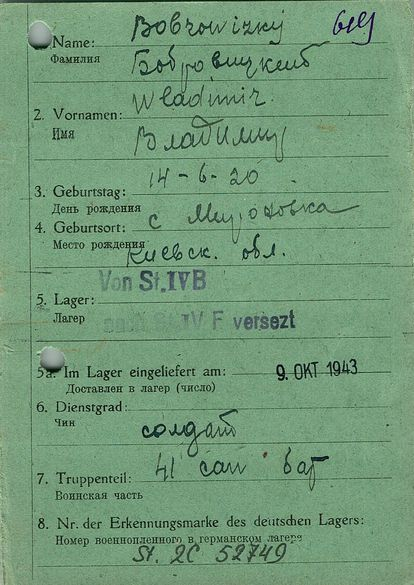 Bobrowizkij
Name:
Фамилия
Бобровицкий
2. Vornamen: Wladimir.
Имя
Владимир
3. Geburtstag: 14-6-20
День рождения
4. Geburtsort: с Мироновка
Место рождения
Киевск. обл.
Von St. IV B
5. Lager:
Лагер
nach St. IV F versezt
5a. Im Lager eingeliefert am: 9. OKT 1943
Доставлен в лагер (число)
6. Dienstgrad:
Чин
солдат
41 сап баг
7. Truppenteil:
Воинская часть
8. Nr. der Erkennungsmarke des deutschen Lagers:
Номер военнопленного в германском лагере
St. 2C 52749